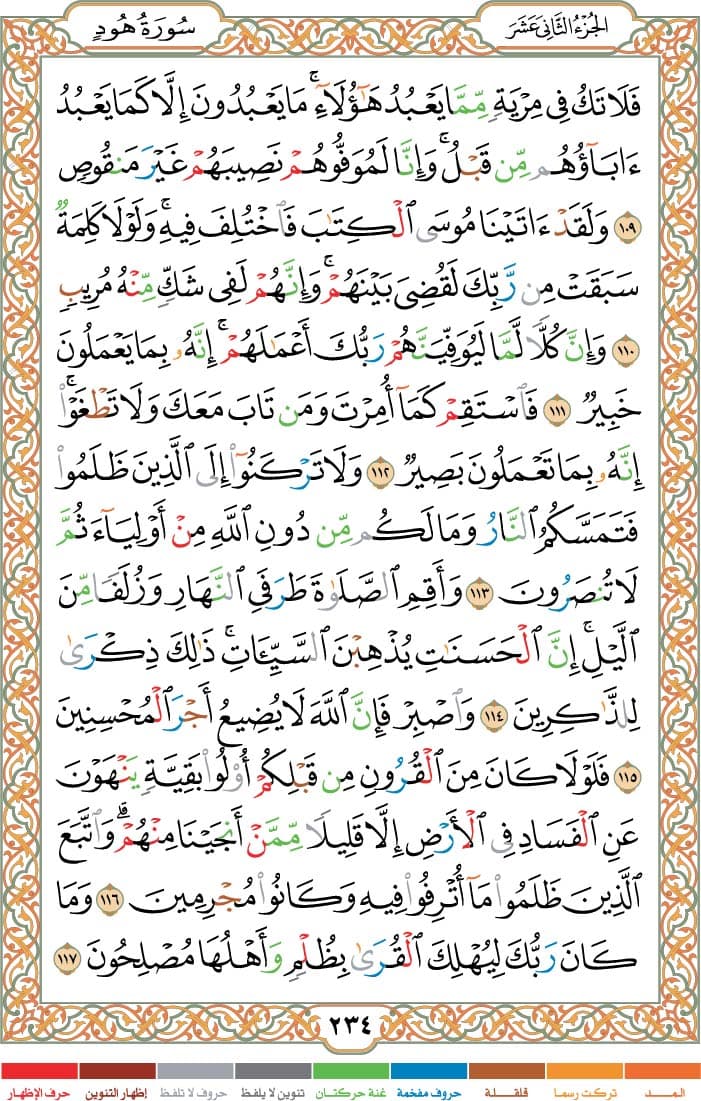 الجزء الثاني عشر
سورة هود
فَلَا تَكُ فِي مِرْيَةٍ مِّمَّا يَعْبُدُ هَٰٓؤُلَآءِ ۚ مَا يَعْبُدُونَ إِلَّا كَمَا يَعْبُدُ
ءَابَآؤُهُم مِّن قَبْلُ ۚ وَإِنَّا لَمُوَفُّوهُمْ نَصِيبَهُمْ غَيْرَ مَنقُوصٍ
١٠٩ وَلَقَدْ ءَاتَيْنَا مُوسَى ٱلْكِتَٰبَ فَٱخْتُلِفَ فِيهِ ۚ وَلَوْلَا كَلِمَةٌ
سَبَقَتْ مِن رَّبِّكَ لَقُضِيَ بَيْنَهُمْ ۚ وَإِنَّهُمْ لَفِي شَكٍّ مِّنْهُ مُرِيبٍ
١١٠ وَإِنَّ كُلًّا لَّمَّا لَيُوَفِّيَنَّهُمْ رَبُّكَ أَعْمَٰلَهُمْ ۚ إِنَّهُۥ بِمَا يَعْمَلُونَ
خَبِيرٌ ١١١ فَٱسْتَقِمْ كَمَآ أُمِرْتَ وَمَن تَابَ مَعَكَ وَلَا تَطْغَوْا۟ ۚ
إِنَّهُۥ بِمَا تَعْمَلُونَ بَصِيرٌ ١١٢ وَلَا تَرْكَنُوٓا۟ إِلَى ٱلَّذِينَ ظَلَمُوا۟
فَتَمَسَّكُمُ ٱلنَّارُ وَمَا لَكُم مِّن دُونِ ٱللَّهِ مِنْ أَوْلِيَآءَ ثُمَّ
لَا تُنصَرُونَ ١١٣ وَأَقِمِ ٱلصَّلَوٰةَ طَرَفَيِ ٱلنَّهَارِ وَزُلَفًا مِّنَ
ٱلَّيْلِ ۚ إِنَّ ٱلْحَسَنَٰتِ يُذْهِبْنَ ٱلسَّيِّـَٔاتِ ۚ ذَٰلِكَ ذِكْرَىٰ
لِلذَّٰكِرِينَ ١١٤ وَٱصْبِرْ فَإِنَّ ٱللَّهَ لَا يُضِيعُ أَجْرَ ٱلْمُحْسِنِينَ
١١٥ فَلَوْلَا كَانَ مِنَ ٱلْقُرُونِ مِن قَبْلِكُمْ أُو۟لُوا۟ بَقِيَّةٍ يَنْهَوْنَ
عَنِ ٱلْفَسَادِ فِي ٱلْأَرْضِ إِلَّا قَلِيلًا مِّمَّنْ أَنجَيْنَا مِنْهُمْ ۗ وَٱتَّبَعَ
ٱلَّذِينَ ظَلَمُوا۟ مَآ أُتْرِفُوا۟ فِيهِ وَكَانُوا۟ مُجْرِمِينَ ١١٦ وَمَا
كَانَ رَبُّكَ لِيُهْلِكَ ٱلْقُرَىٰ بِظُلْمٍ وَأَهْلُهَا مُصْلِحُونَ ١١٧
٢٣٤
المد تركت رسما قلقلة حروف مفخمة غنة حركتان تنوين لا يلفظ حروف لا تلفظ إظهار التنوين حرف الإظهار